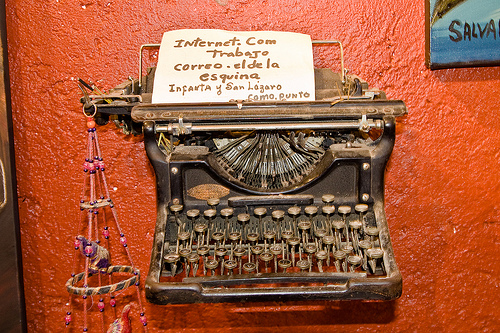 Internet. Com
Trabajo
correo. el de la
esquina
Infanta y San Lázaro
como. punto
SALVA